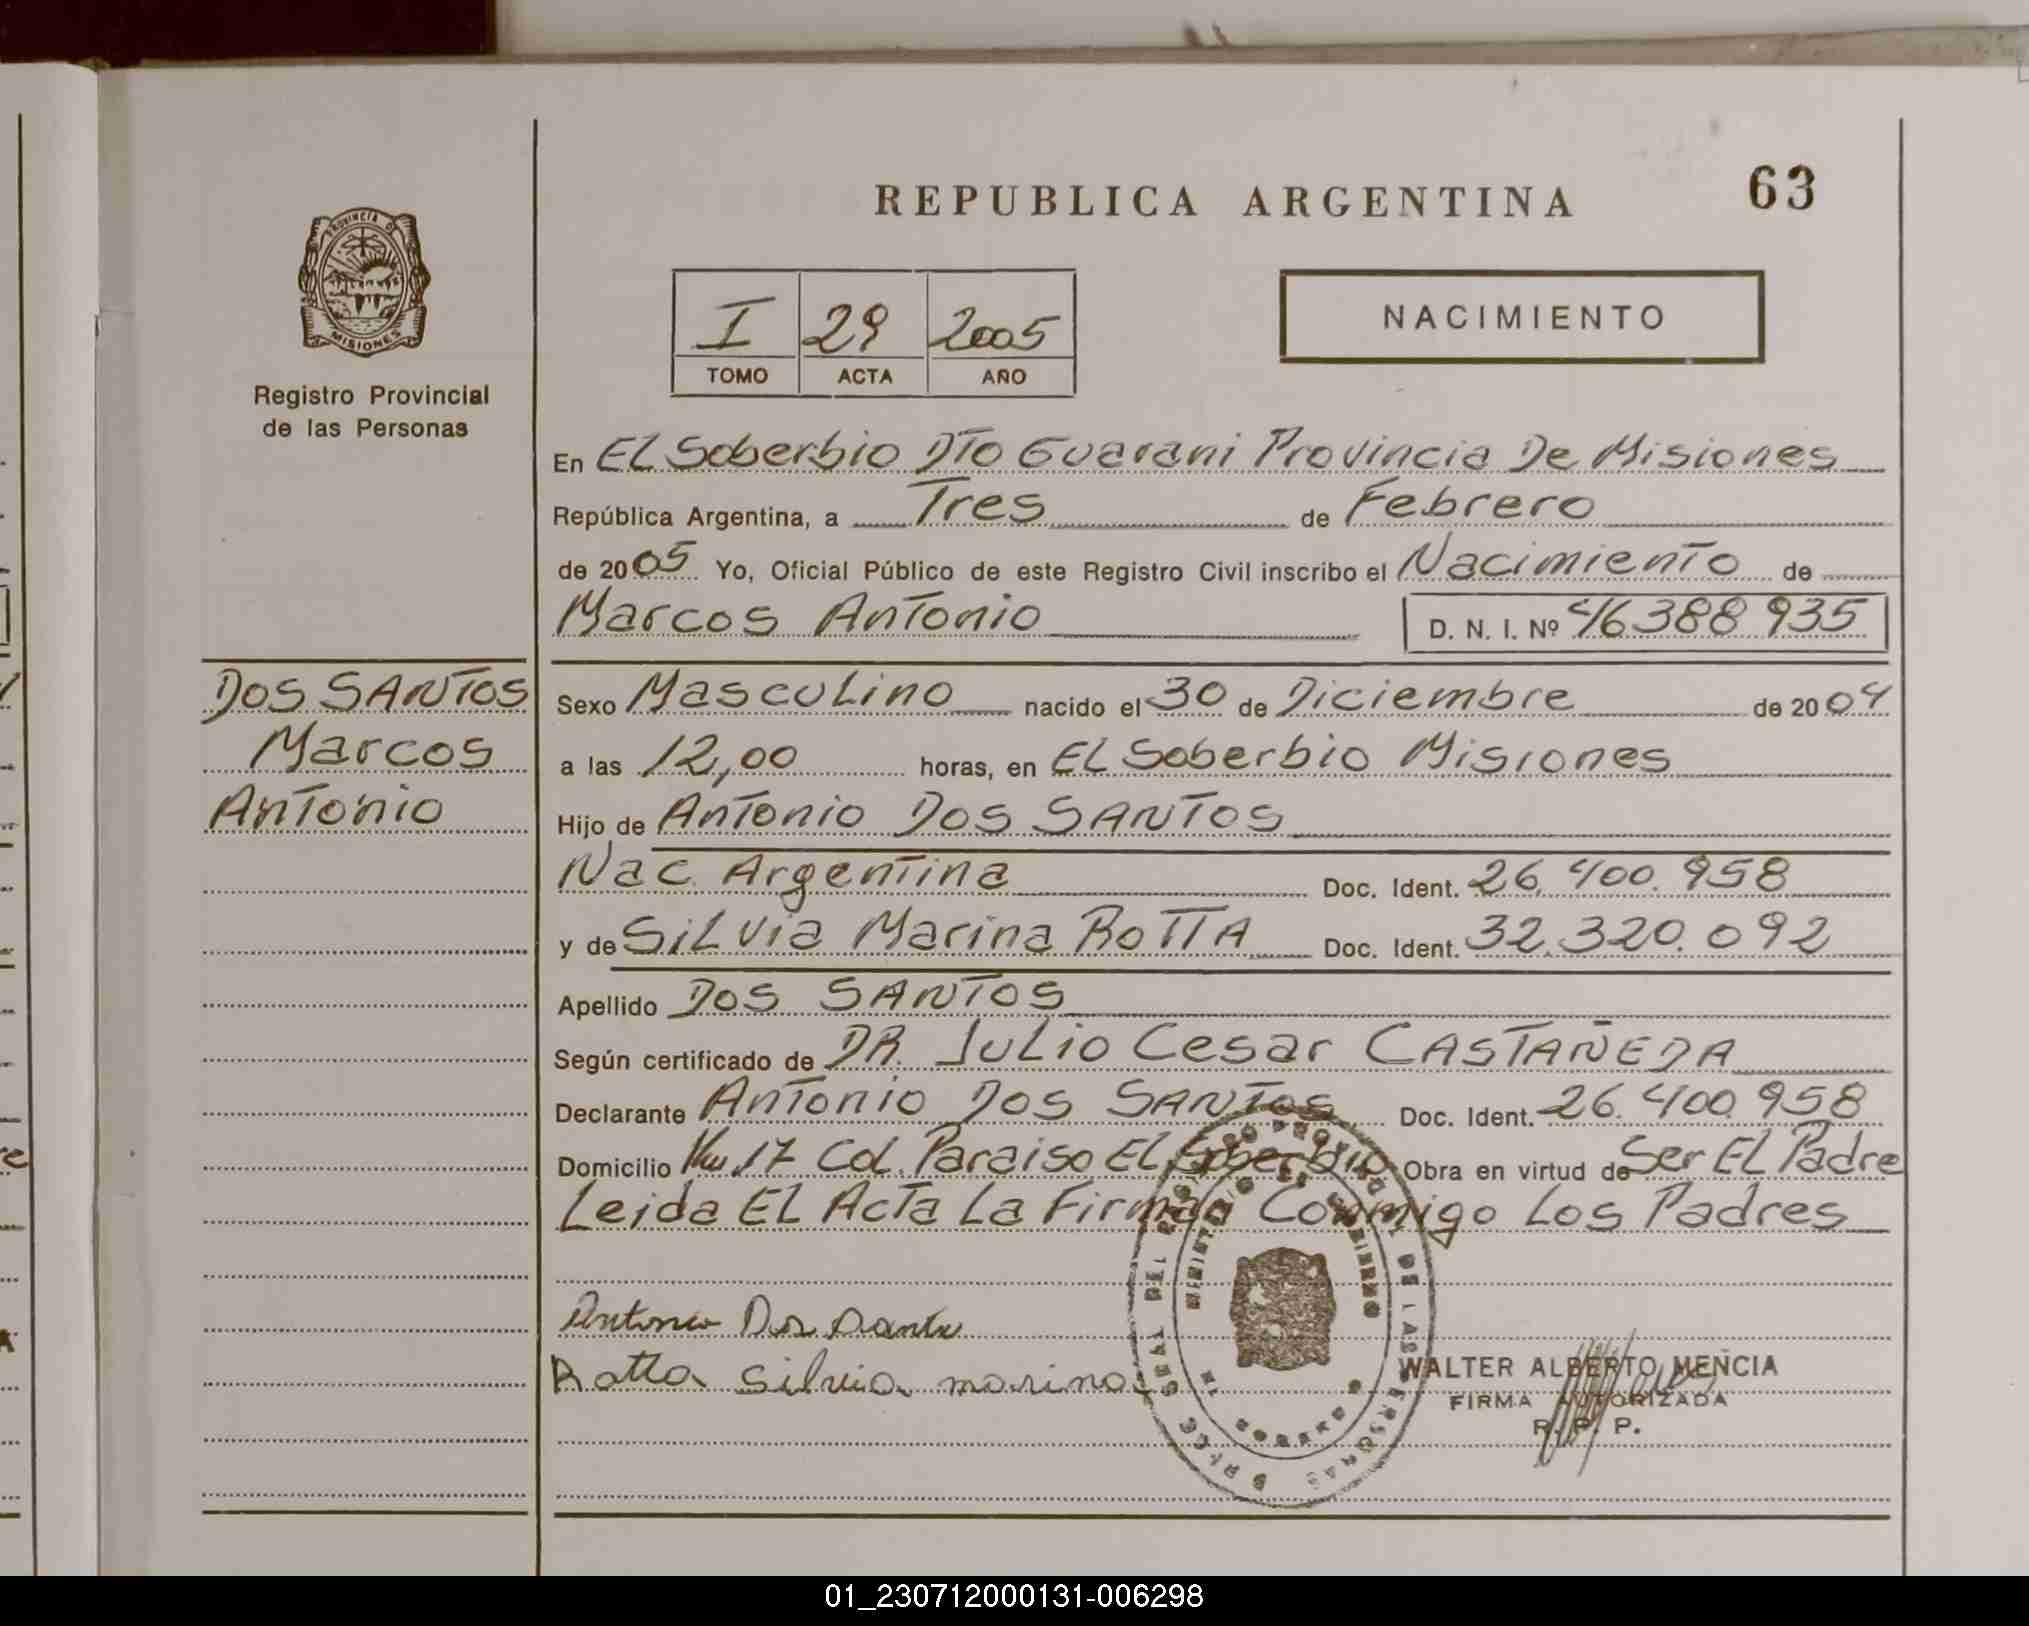 REPUBLICA ARGENTINA
63
PROVINCIA DE
MISIONES
Registro Provincial
de las Personas
I 29 2005
TOMO ACTA AÑO
NACIMIENTO
En El Soberbio DTo Guarani Provincia De Misiones
República Argentina, a Tres de Febrero
de 2005 Yo, Oficial Público de este Registro Civil inscribo el Nacimiento de
Marcos Antonio D. N. I. Nº 46388935
DOS SANTOS
Marcos
Antonio
Sexo Masculino nacido el 30 de Diciembre de 2004
a las 12,00 horas, en El Soberbio Misiones
Hijo de Antonio DOS SANTOS
Nac. Argentina Doc. Ident. 26.400.958
y de Silvia Marina ROTTA Doc. Ident. 32.320.092
Apellido DOS SANTOS
Según certificado de DR. Julio Cesar CASTAÑEDA
Declarante Antonio DOS SANTOS Doc. Ident. 26.400.958
Domicilio Km 17 Col. Paraiso El Soberbio Obra en virtud de Ser El Padre
Leida El Acta La Firman Conmigo Los Padres
Antonio Dos Santos
Rotta Silvia marina
WALTER ALBERTO MENCIA
FIRMA AUTORIZADA
R. P. P.
01_230712000131-006298